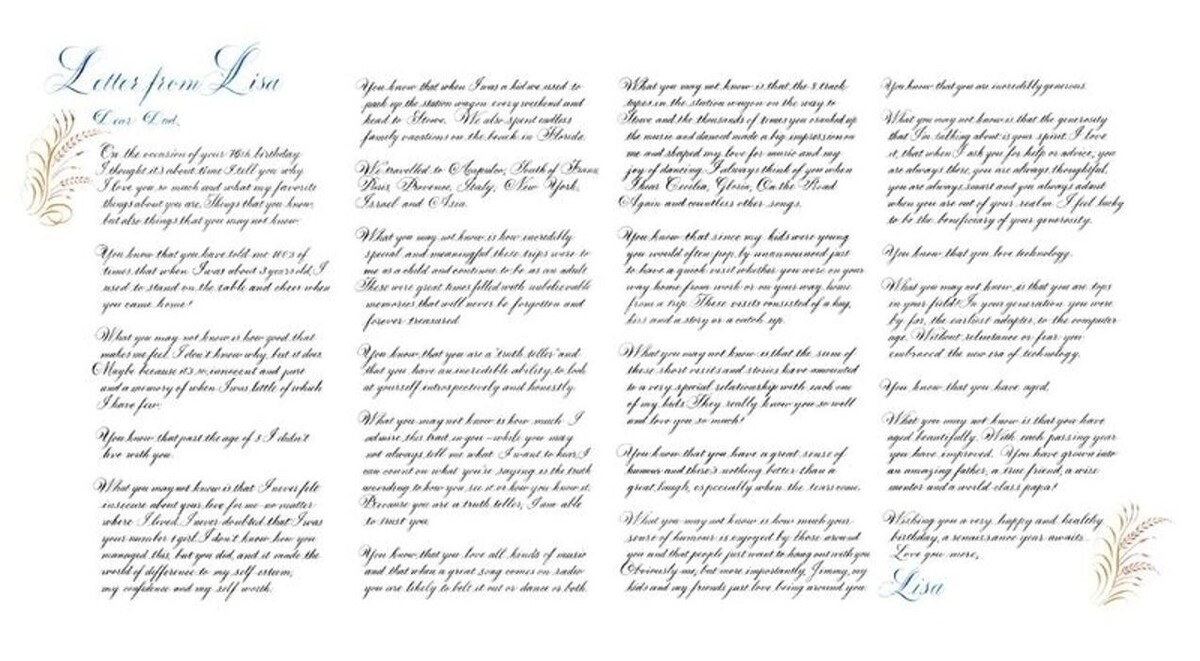 Letter from Lisa
Dear Dad,
On the occasion of your 76th birthday
I thought it's about time I tell you why
I love you so much and what my favorite
things about you are. Things that you know,
but also things that you may not know.
You know that you have told me 100's of
times, that when I was about 3 years old, I
used to stand on the table and cheer when
you came home!
What you may not know is how good that
makes me feel. I don't know why, but it does.
Maybe because it's so innocent and pure
and a memory of when I was little of which
I have few.
You know that past the age of 5 I didn't
live with you.
What you may not know is that I never felt
insecure about your love for me - no matter
where I lived. I never doubted that I was
your number 1 girl. I don't know how you
managed this, but you did, and it made the
world of difference to my self esteem,
my confidence and my self worth.
You know that when I was a kid we used to
pack up the station wagon every weekend and
head to Stowe. We also spent endless
family vacations on the beach in Florida.
We travelled to Acapulco, South of France,
Paris, Provence, Italy, New York,
Israel and Asia.
What you may not know is how incredibly
special and meaningful these trips were to
me as a child and continue to be as an adult.
These were great times filled with unbelievable
memories that will never be forgotten and
forever treasured.
You know that you are a "truth teller" and
that you have an incredible ability to look
at yourself introspectively and honestly.
What you may not know is how much I
admire this trait in you - while you may
not always tell me what I want to hear, I
can count on what you're saying is the truth
according to how you see it or how you know it.
Because you are a truth teller, I am able
to trust you.
You know that you love all kinds of music
and that when a great song comes on radio
you are likely to belt it out or dance or both.
What you may not know is that the 8 track
tapes in the station wagon on the way to
Stowe and the thousands of times you cranked up
the music and danced made a big impression on
me and shaped my love for music and my
joy of dancing. I always think of you when
I hear Cecelia, Gloria, On the Road
Again and countless other songs.
You know that since my kids were young
you would often pop by unannounced just
to have a quick visit whether you were on your
way home from work or on your way home
from a trip. These visits consisted of a hug,
kiss and a story or a catch up.
What you may not know is that the sum of
these short visits and stories have amounted
to a very special relationship with each one
of my kids. They really know you so well
and love you so much!
You know that you have a great sense of
humour and there's nothing better than a
great laugh, especially when the tears come.
What you may not know is how much your
sense of humour is enjoyed by those around
you and that people just want to hang out with you.
Obviously me, but more importantly, Jimmy, my
kids and my friends just love being around you.
You know that you are incredibly generous.
What you may not know is that the generosity
that I'm talking about is your spirit. I love
it, that when I ask you for help or advice, you
are always there, you are always thoughtful,
you are always smart and you always admit
when you are out of your realm. I feel lucky
to be the beneficiary of your generosity.
You know that you love technology.
What you may not know, is that you are tops
in your field! In your generation you were
by far, the earliest adapter, to the computer
age. Without reluctance or fear you
embraced the new era of technology.
You know that you have aged.
What you may not know is that you have
aged beautifully. With each passing year
you have improved. You have grown into
an amazing father, a true friend, a wise
mentor and a world class papa!
Wishing you a very happy and healthy
birthday, a renaissance year awaits.
Love you more,
Lisa